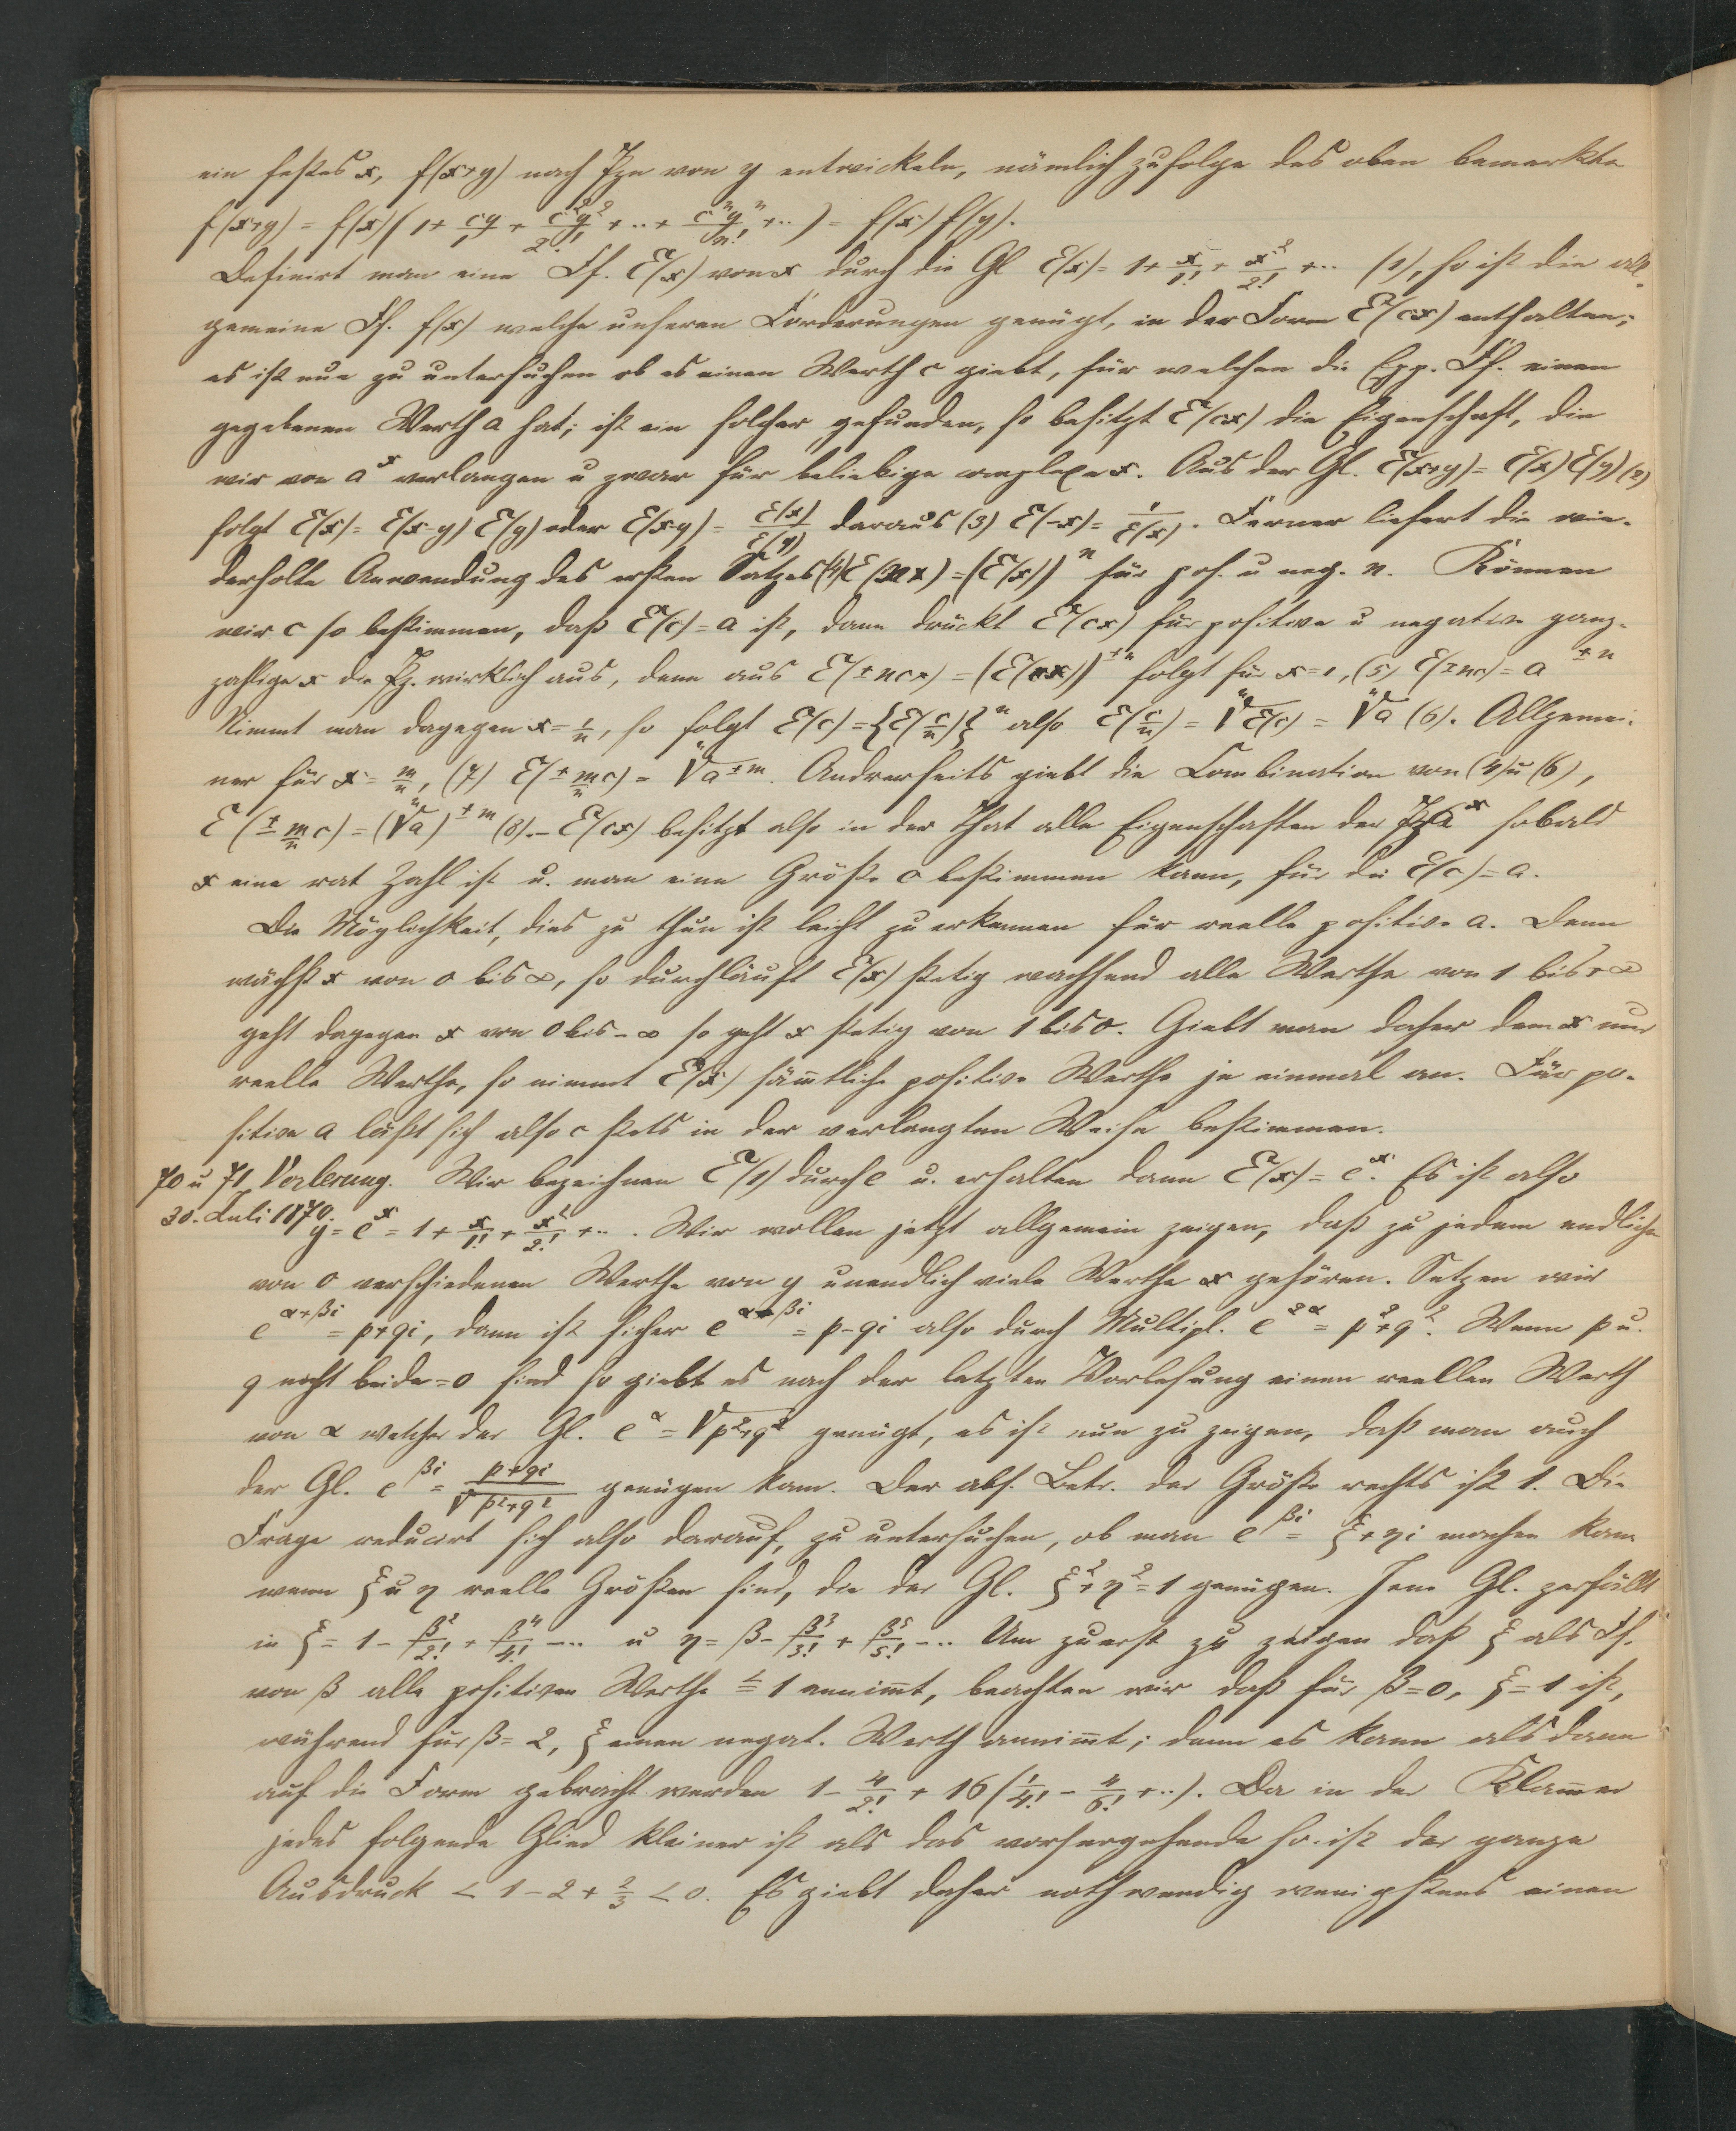 ein festes x, f(x+y) nach Pzn von y entwickeln, nämlich zufolge des oben bemerkte
f(x+y) = f(x)(1 + cy/1 + c²y²/2! + .. + cⁿyⁿ/n! + ..) = f(x) f(y).
Definirt man eine Ff. E(x) von x durch die Gl E(x) = 1 + x/1! + x²/2! + .. (1), so ist die all-
gemeine Ff. f(x) welche unseren Forderungen genügt, in der Form E(cx) enthalten;
es ist nun zu untersuchen ob es einen Werth c giebt, für welchen die Exp. Ff. einen
gegebenen Werth a hat; ist ein solcher gefunden, so besitzt E(cx) die Eigenschaft, die
wir von aˣ verlangen u zwar für beliebige complexe x. Aus der Gl. E(x+y) = E(x) E(y) (2)
folgt E(x) = E(x-y) E(y) oder E(x-y) = E(x)/E(y) daraus (3) E(-x) = 1/E(x). Ferner liefert die wie-
derholte Anwendung des ersten Satzes (4) E(nx) = (E(x))ⁿ für pos. u neg. n. Können
wir c so bestimmen, daß E(c) = a ist, dann drückt E(cx) für positive u negative ganz-
zahlige x die Pz. wirklich aus, denn aus E(±ncx) = (E(cx))^±n folgt für x=1, (5) E(±nc) = a^±n
Nimmt man dagegen x = 1/n, so folgt E(c) = {E(c/n)}ⁿ also E(c/n) = ⁿ√E(c) = ⁿ√a (6). Allgemei-
ner für x = m/n, (7) E(± m/n c) = ⁿ√a^±m. Andrerseits giebt die Combination von (4) u (6),
E(± m/n c) = (ⁿ√a)^±m (8). – E(cx) besitzt also in der That alle Eigenschaften der Pz aˣ sobald
x eine rat Zahl ist u. man eine Größe c bestimmen kann, für die E(c) = a.
Die Möglichkeit, dies zu thun ist leicht zu erkennen für reelle positive a. Denn
wächst x von 0 bis ∞, so durchläuft E(x) stetig wachsend alle Werthe von 1 bis +∞
geht dagegen x von 0 bis -∞ so geht x stetig von 1 bis 0. Giebt man daher dem x nur
reelle Werthe, so nimmt E(x) säm̄tliche positive Werthe je einmal an. Für po-
sitive a läßt sich also c stets in der verlangten Weise bestimmen.
70 u 71 Vorlesung. Wir bezeichnen E(1) durch e u. erhalten dann E(x) = eˣ. Es ist also
30. Juli 1870. y = eˣ = 1 + x/1! + x²/2! + .. . Wir wollen jetzt allgemein zeigen, daß zu jedem endliche
von 0 verschiedenen Werthe von y unendlich viele Werthe x gehören. Setzen wir
e^α+βi = p+qi, dann ist sicher e^α-βi = p-qi also durch Multipl. e^2α = p²+q². Wenn p u.
q nicht beide = 0 sind so giebt es nach der letzten Vorlesung einen reellen Werth
von α welcher der Gl. e^α = √p²+q² genügt, es ist nun zu zeigen, daß man auch
der Gl. e^βi = p+qi/√p²+q² genügen kann. Der abs. Betr. der Größe rechts ist 1. Die
Frage reducirt sich also darauf, zu untersuchen, ob man e^βi = ξ+ηi machen kann
wenn ξ u η reelle Größen sind, die der Gl. ξ²+η²=1 genügen. Jene Gl. zerfällt
in ξ = 1 - β²/2! + β⁴/4! - .. u η = β - β³/3! + β⁵/5! - .. Um zuerst zu zeigen daß ξ als Ff.
von β alle positiven Werthe ≦ 1 annim̄t, beachten wir daß für β=0, ξ=1 ist,
während für β=2, ξ einen negat. Werth annim̄t; denn es kann alsdann
auf die Form gebracht werden 1 - 4/2! + 16(1/4! - 4/6! + ..). Da in der Klam̄er
jedes folgende Glied kleiner ist als das vorhergehende so ist der ganze
Ausdruck < 1 - 2 + 2/3 < 0. Es giebt daher nothwendig wenigstens einen